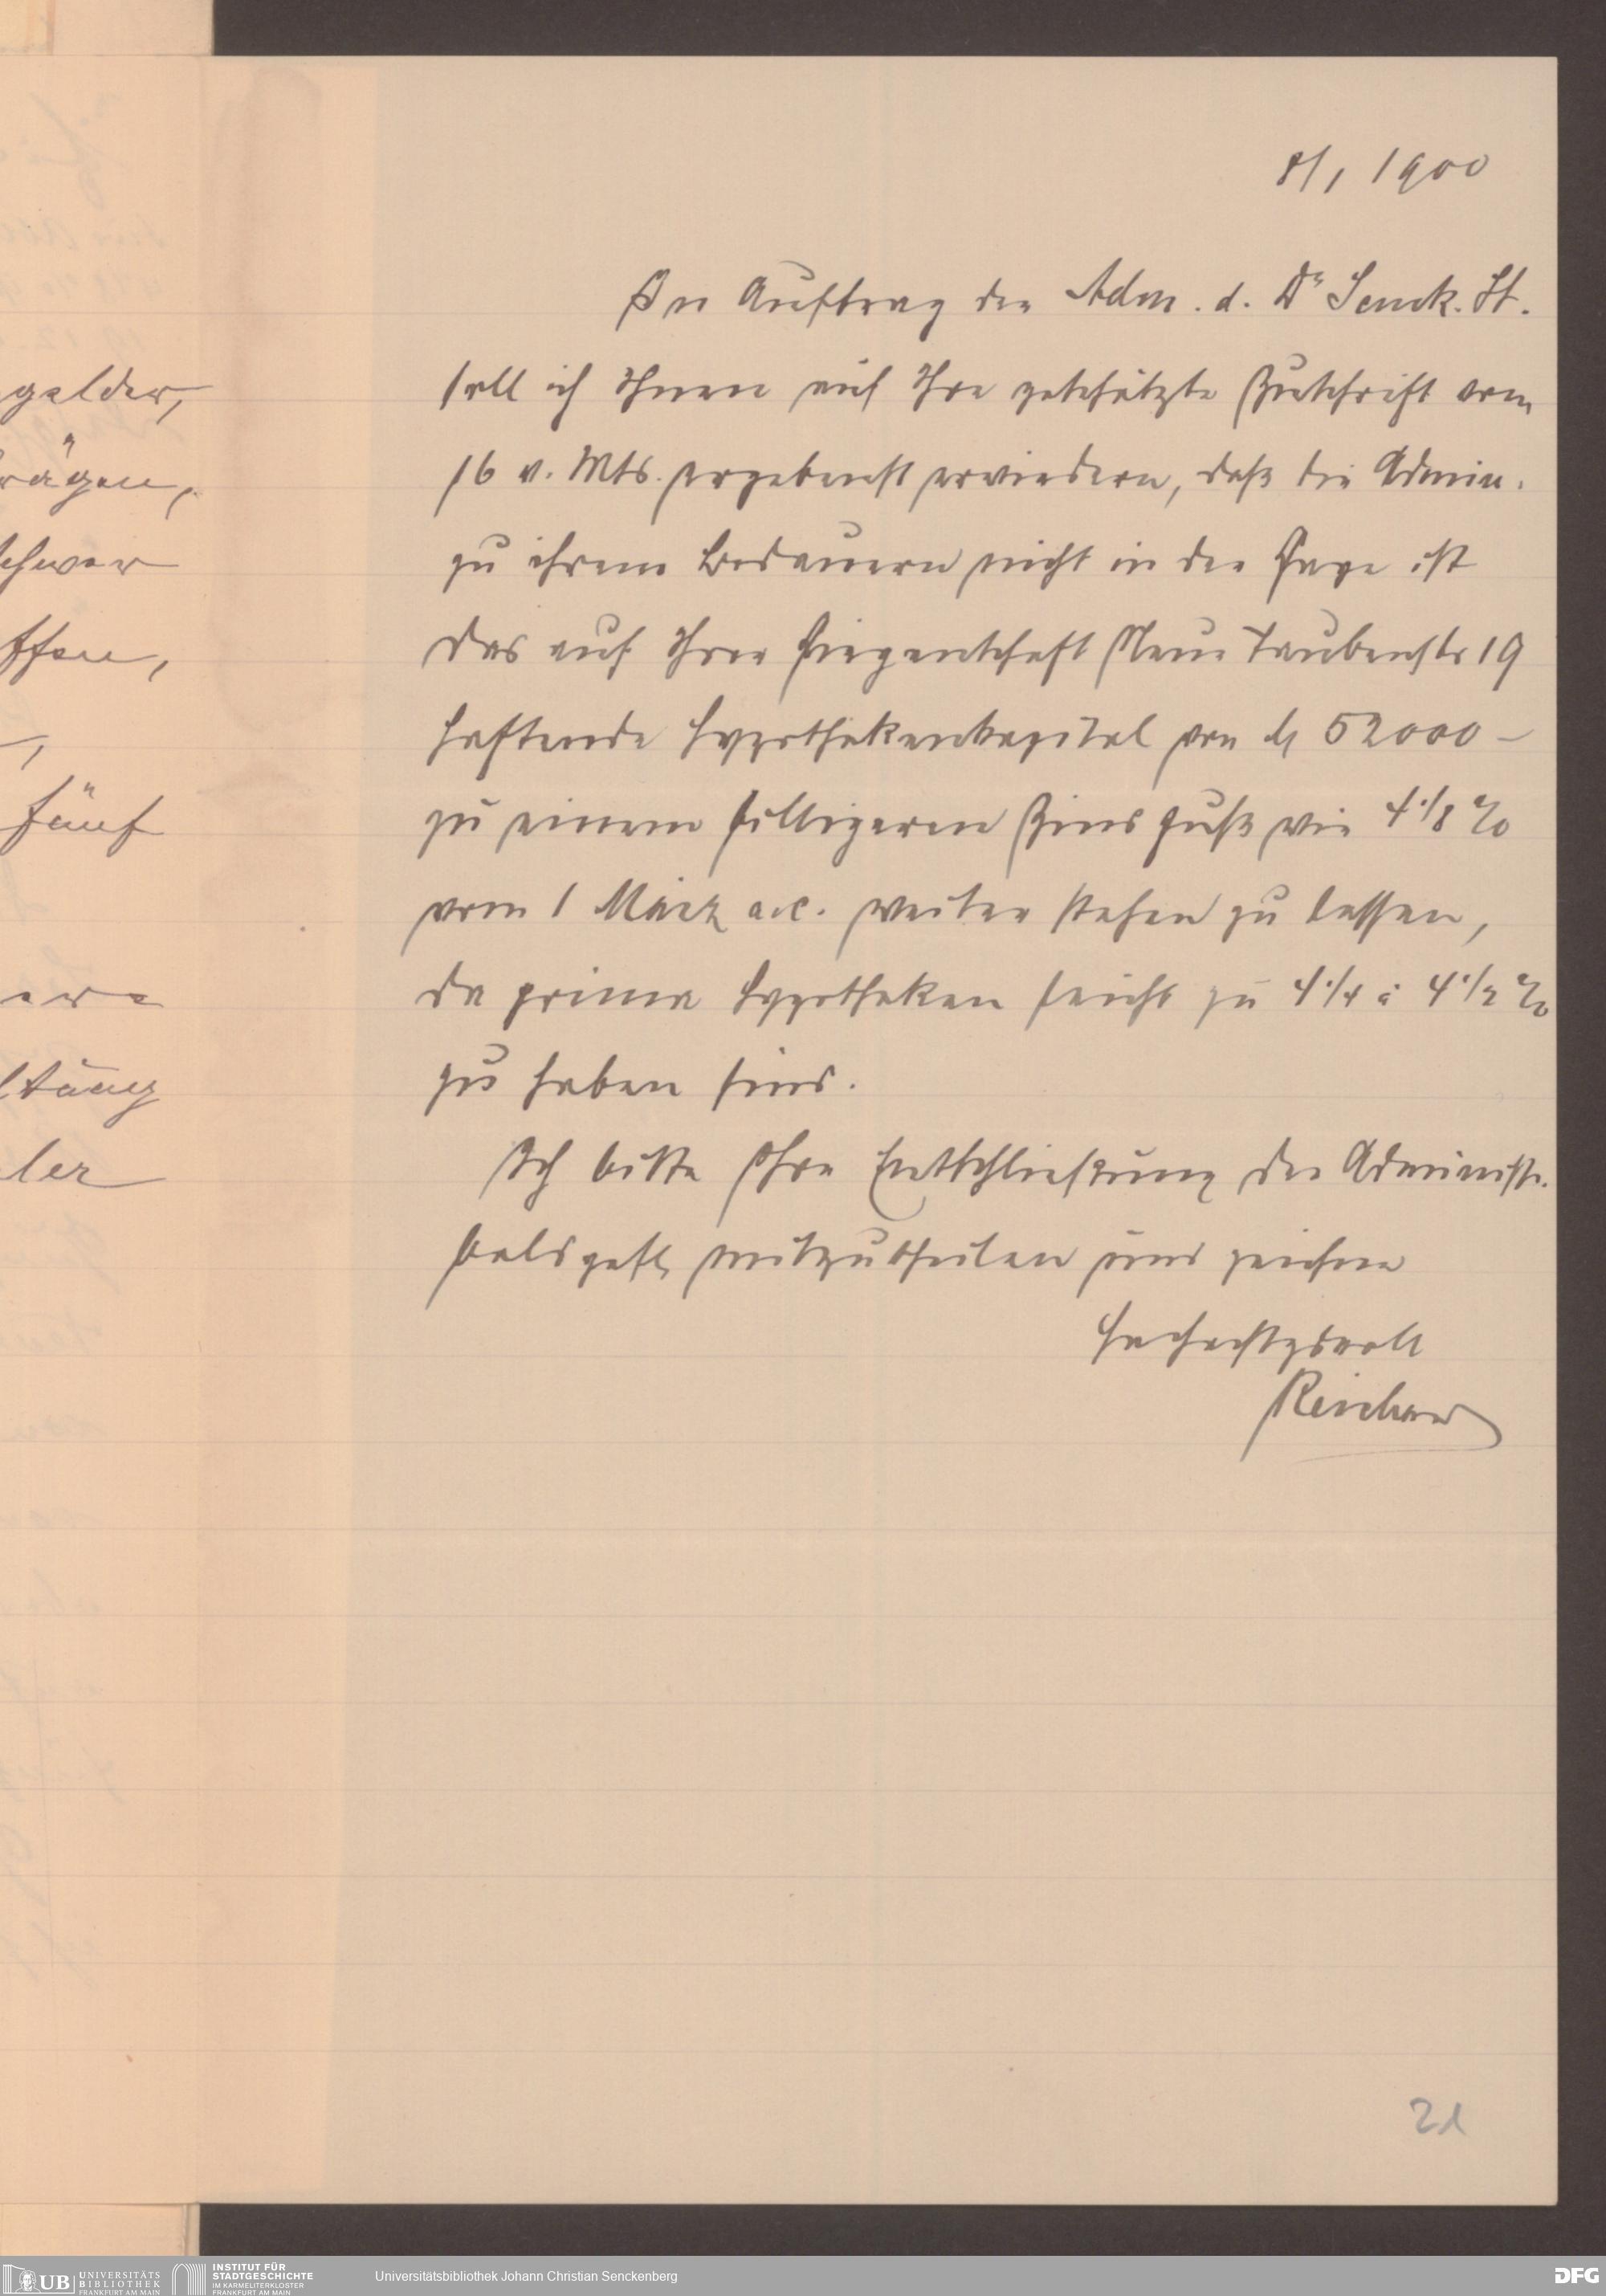 8/1 1900
Im Auftrag der Adm. d. Dr Senck. St.
soll ich Ihnen auf Ihre geschätzte Zuschrift vom
16 v. Mts. ergebenst erwiedern, daß die Admin.
zu ihrem Bedauern nicht in der Lage ist
das auf Ihrer Liegenschaft Neue Taubenstr 19
haftende Hypothekenkapital von M 52000 –
zu einem billigeren Zinsfuß wie 4 1/8 %
vom 1 März a.c. weiter stehen zu lassen,
da prima Hypotheken leicht zu 4 1/4 à 4 1/2 %
zu haben sind.
Ich bitte Ihre Entschließung der Administr.
baldgefl. mitzutheilen und zeichne
Hochachtgsvoll
21
gelder,
rägen,
schwer
ffen,
fünf
ere
ltung
ler
UB UNIVERSITÄTS
BIBLIOTHEK
FRANKFURT AM MAIN
INSTITUT FÜR
STADTGESCHICHTE
IM KARMELITERKLOSTER
FRANKFURT AM MAIN
Universitätsbibliothek Johann Christian Senckenberg
DFG